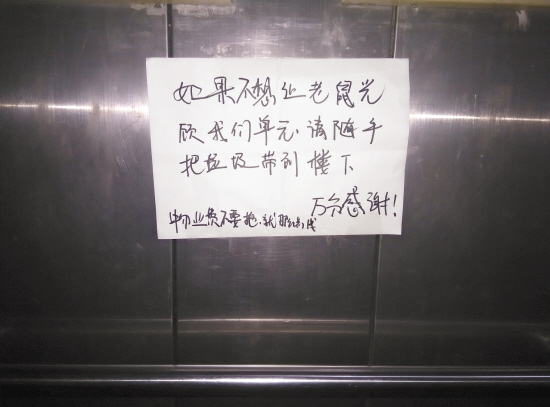 如果不想让老鼠光
顾我们单元，请随手
把垃圾带到楼下
万分感谢！
物业费不要抢，就